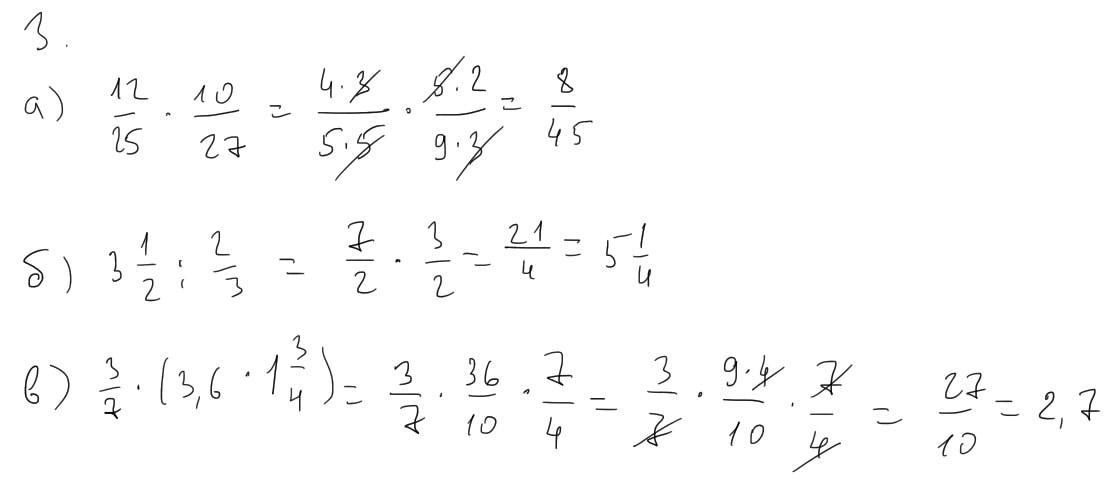 3.
а) 12/25 · 10/27 = 4·3/5·5 · 5·2/9·3 = 8/45
б) 3 1/2 : 2/3 = 7/2 · 3/2 = 21/4 = 5 1/4
в) 3/7 · (3,6 · 1 3/4) = 3/7 · 36/10 · 7/4 = 3/7 · 9·4/10 · 7/4 = 27/10 = 2,7